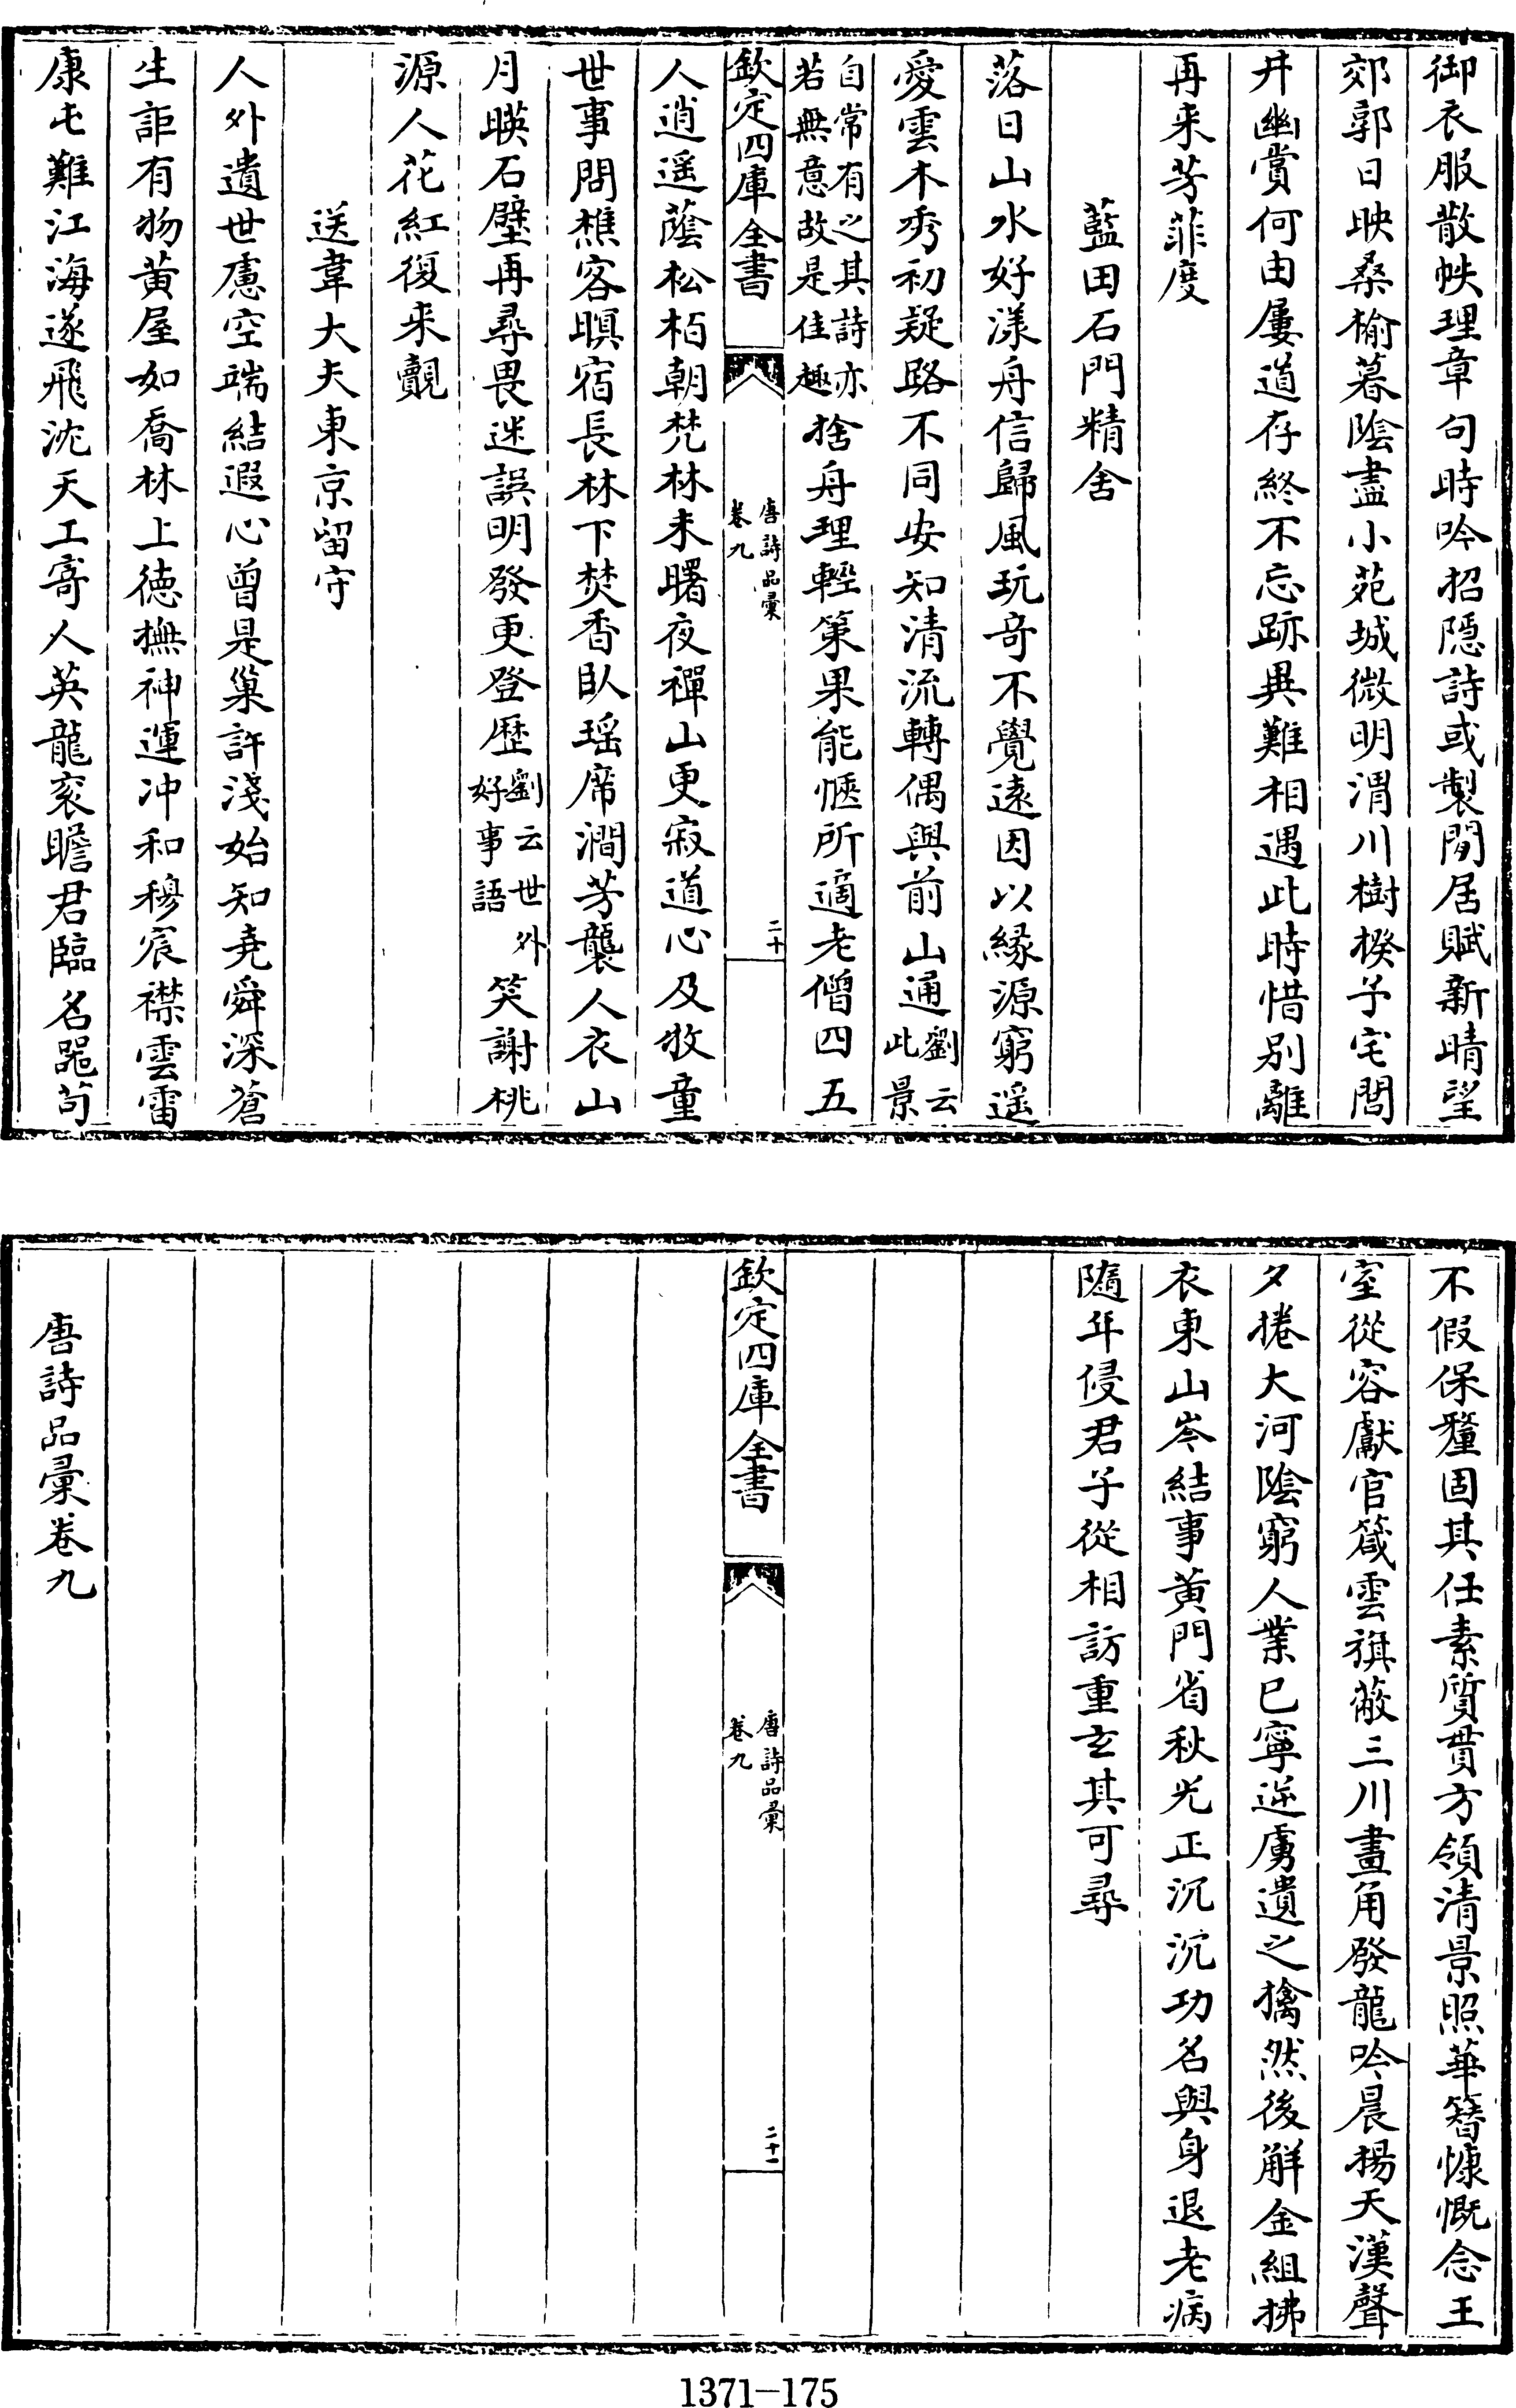 御衣服散帙理章句時吟招隱詩或製閒居賦新晴望
郊郭日映桑榆暮陰盡小苑城微明渭川樹揆予宅閭
井幽賞何由屢道存終不忘跡異難相遇此時惜別離
再来芳菲度
藍田石門精舍
落日山水好漾舟信歸風玩竒不覺遠因以縁源窮遥
愛雲木秀初疑路不同安知清流轉偶與前山通劉云此景
自常有之其詩亦若無意故是佳趣捨舟理輕策果能愜所適老僧四五
欽定四庫全書 唐詩品彙卷九 二十
人逍遥蔭松栢朝梵林未曙夜禪山更寂道心及牧童
世事問樵客暝宿長林下焚香臥瑶席澗芳襲人衣山
月映石壁再尋畏迷誤明發更登歴劉云世外好事語笑謝桃
源人花紅復来覿
送韋大夫東京留守
人外遺世慮空端結遐心曾是巢許淺始知堯舜深蒼
生詎有物黄屋如喬林上德撫神運冲和穆宸襟雲雷
康屯難江海遂飛沈天工寄人英龍衮瞻君臨名噐苟
不假保釐固其任素質貫方領清景照華簪慷慨念王
室從容獻官箴雲旗蔽三川畫角發龍吟晨揚天漢聲
夕捲大河陰窮人業已寧逆虜遺之擒然後解金組拂
衣東山岑結事黄門省秋光正沉沉功名與身退老病
隨年侵君子從相訪重玄其可尋
欽定四庫全書 唐詩品彙卷九 二十一
唐詩品彙卷九
1371-175